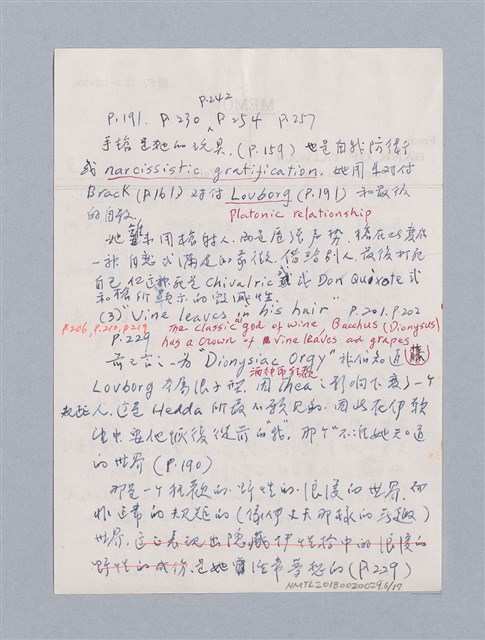 p.242
p.191. p.230 p.254 p.257
手槍是她的玩具, (p.159) 也是自我防衛
或 narcissistic gratification. 她用來對付
Brack (p.161) 對付 Lovborg (p.191) 和最後
的自殺
Platonic relationship
她雖未用槍射人, 而是虛張聲勢, 槍在此變成
一種自戀式滿足的象徵, 借給別人, 最後打死
自己, 但這種死是 chivalric 或 Don Quixote 式
和槍所顯示的毀滅性.
(3) "Vine leaves in his hair" p.201. p.202
p.206, p.210, p219 The classic "god of wine, Bacchus (Dionysus)
has a crown of vine leaves ad grapes
p.229
前已言之一為 "Dionysiac Orgy" 我們知道
酒神而狂歡
Lovborg 本為浪子型, 因 Thea 之影响下変了一个
規矩人, 這是 Hedda 所最不願見的, 因此在伊
要他恢復從前的"我", 那个"不准她知道
的世界 (p.190)
那是一个狂歡的, 野性的, 浪漫的世界, 而
非正常的規矩的 (像伊丈夫那樣的
世界, 這正表現出隱藏伊性格中的浪漫的
野性的成份, 是她夢想的 (p.229)
NMTL20180020029.6/17